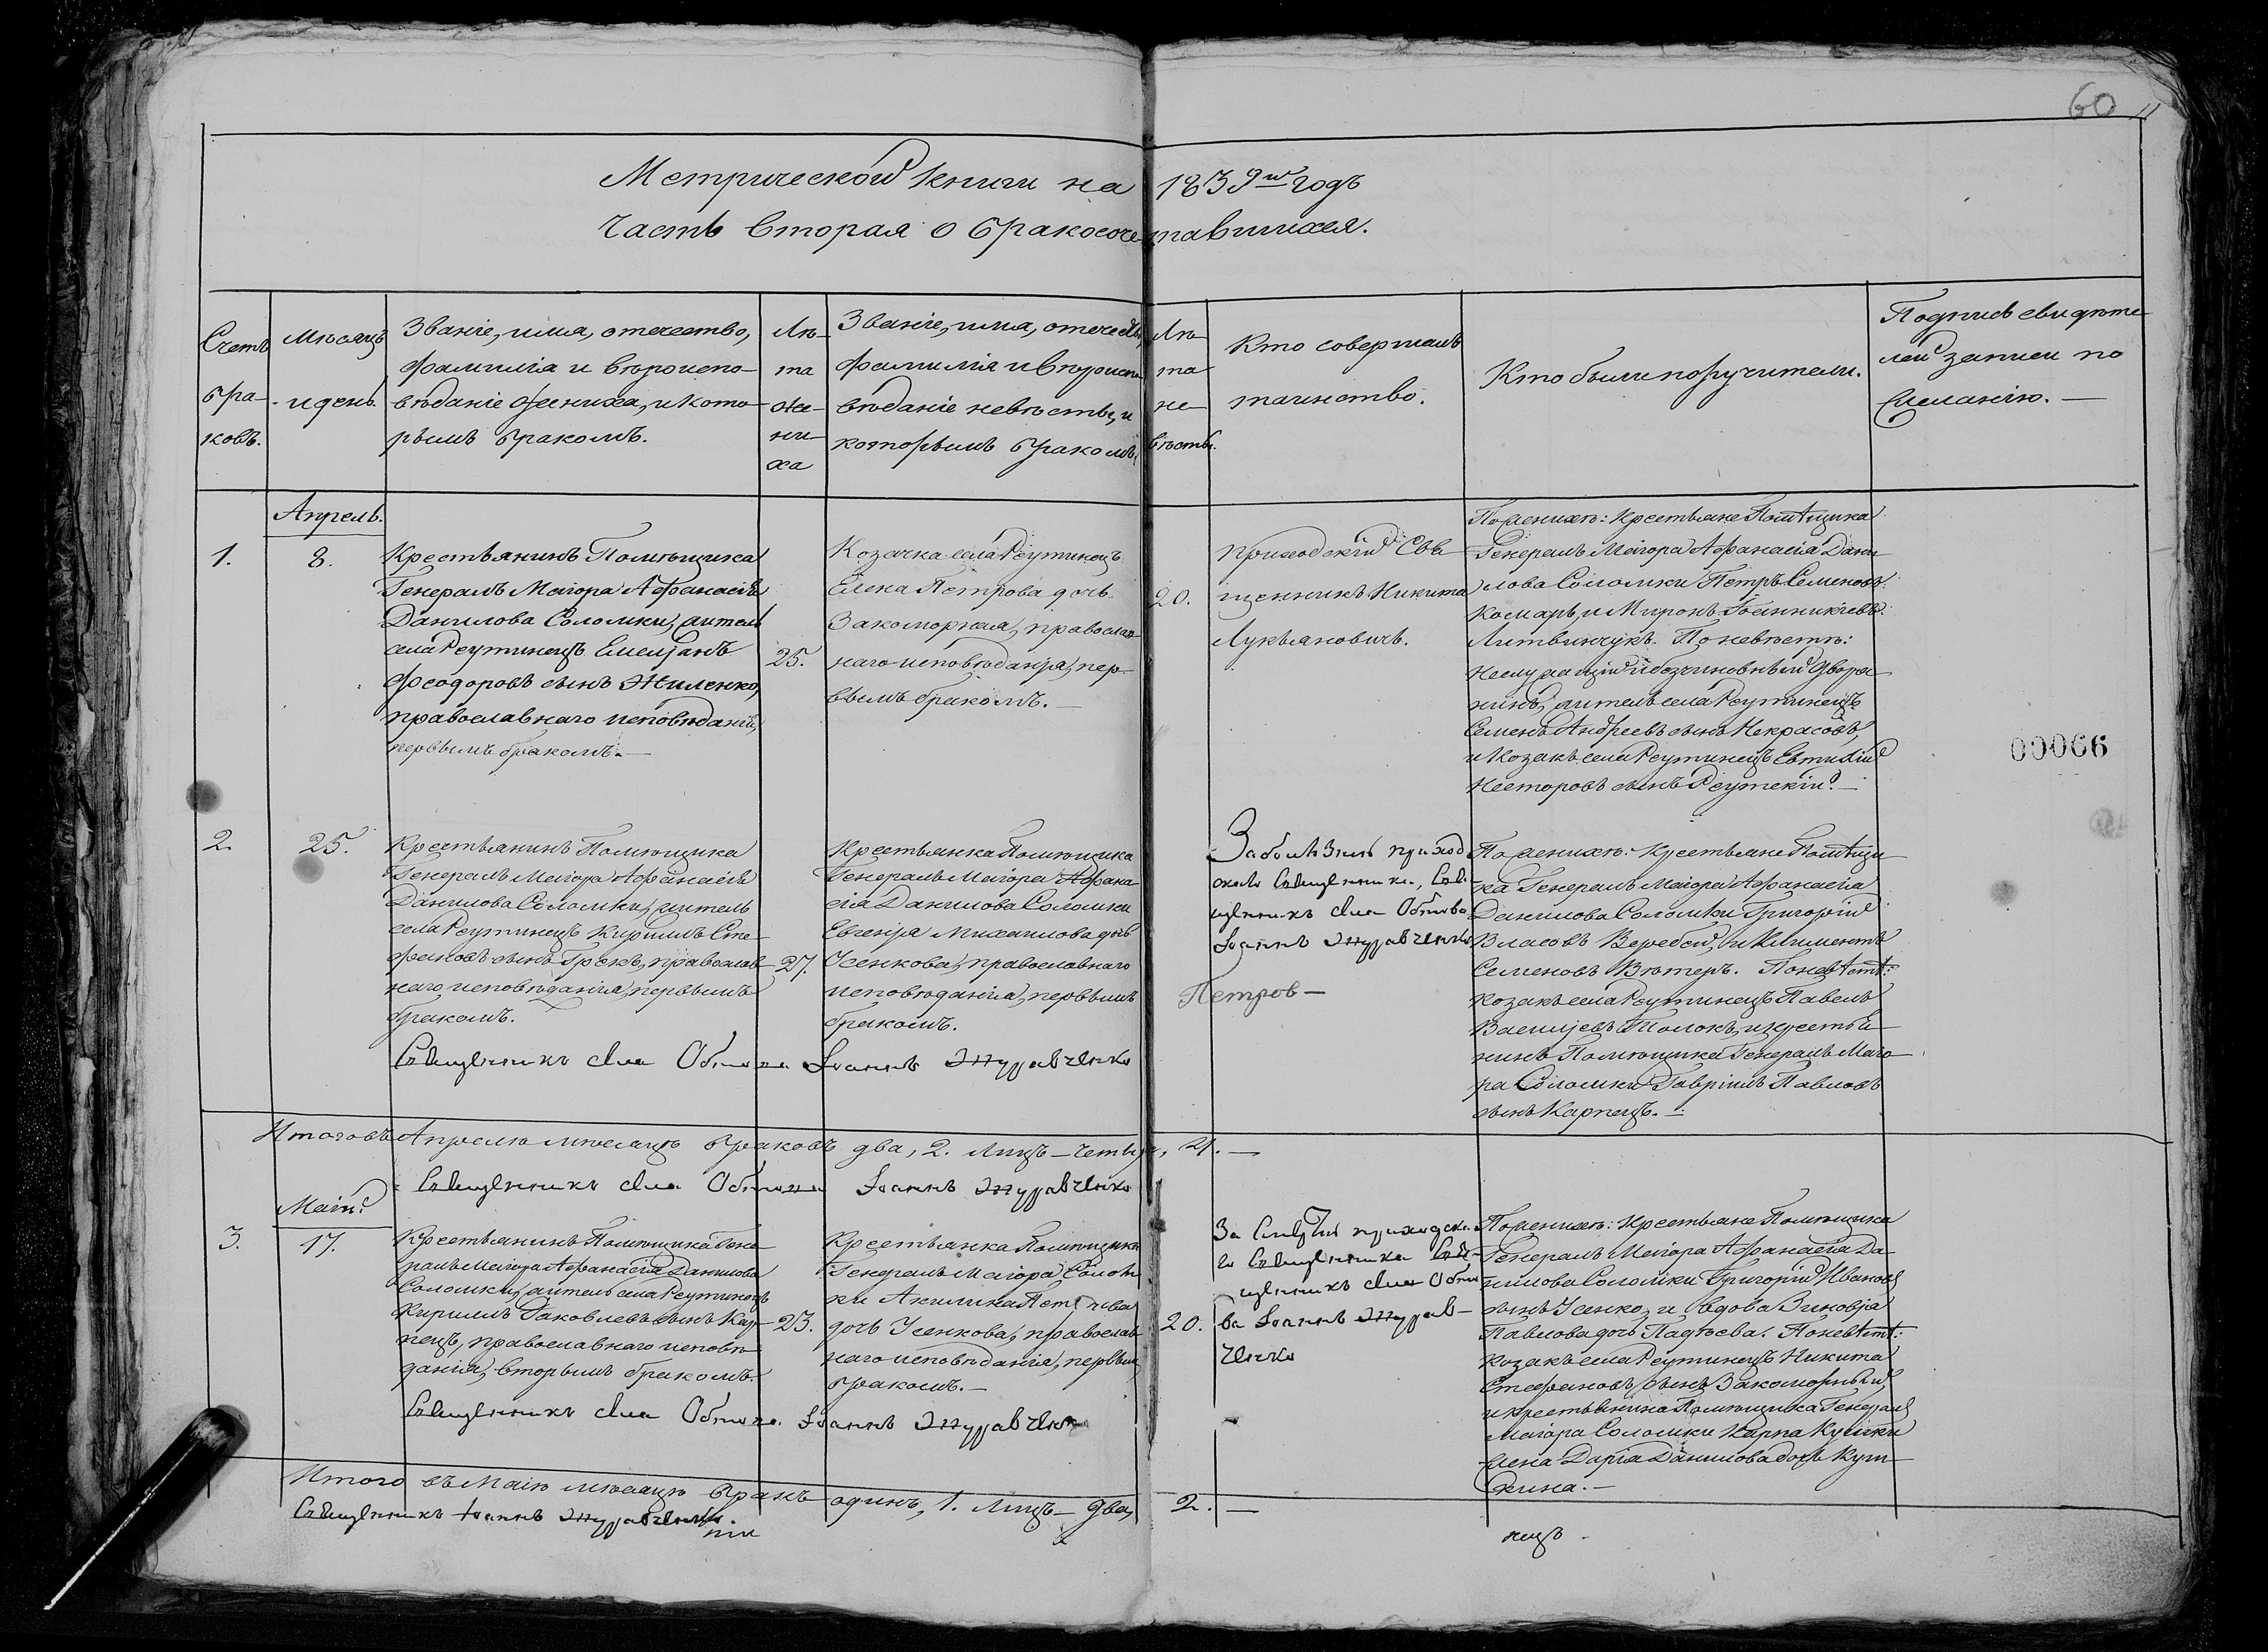 60
Метрической книги на 1839й годъ
Часть вторая о бракосочетавшихся.
Счетъ
бра-
ковъ.
Мѣсяцъ
и день.
Званіе, имя, отечество,
фамилія и вѣроиспо-
вѣданіе жениха, и кото-
рымъ бракомъ.
Лѣ-
та
же-
ни-
ха
Званіе, имя, отечество,
фамилія и вѣроиспо-
вѣданіе невѣсты, и
которымъ бракомъ.
Лѣ-
та
не-
вѣсты.
Кто совершалъ
таинство.
Кто были поручители.
Подпись свидѣте-
лей записи по
желанію. —
Апрель.
1.
8.
Крестьянинъ Помѣщика
Генералъ Маіора Афанасія
Данилова Соломки, житель
села Реутинецъ Емельянъ
Феодоровъ сынъ Жиленко,
православнаго исповѣданія,
первымъ бракомъ. —
25.
Козачка села Реутинецъ
Елена Петрова дочь
Закоморная, православ-
наго исповѣданія, пер-
вымъ бракомъ. —
20.
Приходскій Свя-
щенникъ Никита
Лукьяновичъ.
По женихѣ: крестьяне Помѣщика
Генералъ Маіора Афанасія Дани-
лова Соломки Петръ Семеновъ
Комаръ, и Миронъ
Литвинчукъ. По невѣстѣ:
Неслужащій и безчиновный Дворя-
нинъ, житель села Реутинецъ
Семенъ Андреевъ сынъ Некрасовъ,
и Козакъ села Реутинецъ Евтихій
Несторовъ сынъ Реутскій. —
00066
2.
25.
Крестьянинъ Помѣщика
Генералъ Маіора Афанасія
Данилова Соломки, житель
села Реутинецъ Кириллъ Сте-
фановъ сынъ Грекъ, православ-
наго исповѣданія, первымъ
бракомъ.
27.
Крестьянка Помѣщика
Генералъ Маіора Афана-
сія Данилова Соломки
Евгенія Михаилова дочь
Усенкова, православнаго
исповѣданія, первымъ
бракомъ.
Священникъ села Обтова Іоаннъ Журавченко
Петров —
За болѣзнію приход
скаго Священника, Свя-
щенникъ села Обтова
Іоаннъ Журавченко
По женихѣ: Крестьяне Помѣщи-
ка Генералъ Маіора Афанасія
Данилова Соломки Григорій
Власовъ Веребей, и Климентъ
Семеновъ. По невѣстѣ:
козакъ села Реутинецъ Павелъ
Васильевъ Толокъ, и крестья-
нинъ Помѣщика Генералъ Маіо-
ра Соломки Гавріилъ Павловъ
сынъ Карпецъ. —
Итого въ Апрелѣ мѣсяцѣ браковъ два, 2. Лицъ — четыре, 4. —
Священникъ села Обтова Іоаннъ Журавченко
Маій
3.
17.
Крестьянинъ Помѣщика Гене-
ралъ Маіора Афанасія Данилова
Соломки, житель села Реутинецъ
Кириллъ Іаковлевъ сынъ Кар-
пецъ, православнаго исповѣ-
данія, вторымъ бракомъ.
23.
Крестьянка Помѣщика
Генералъ Маіора Солом-
ки Акилина
дочь Усенкова, православ-
наго исповѣданія, первымъ
бракомъ. —
Священникъ села Обтова Іоаннъ Журавченко
20.
За смертію приходска-
го Священника Свя-
щенникъ села Обто-
ва Іоаннъ Журав-
ченко
По женихѣ: Крестьяне Помѣщика
Генералъ Маіора Афанасія Да-
нилова Соломки Григорій Ивановъ
сынъ Усенко, и вдова Зиновія
Павлова дочь Падѣева. По невѣстѣ:
козакъ села Реутинецъ Никита
Стефановъ сынъ Закоморный,
и крестьянина Помѣщика Генералъ
Маіора Соломки Карпа
жена Дарія Данилова дочь Кут-
Итого въ Маіѣ мѣсяцѣ бракъ одинъ, 1. Лицъ — два, 2. —
Священникъ Іоаннъ Журавченко